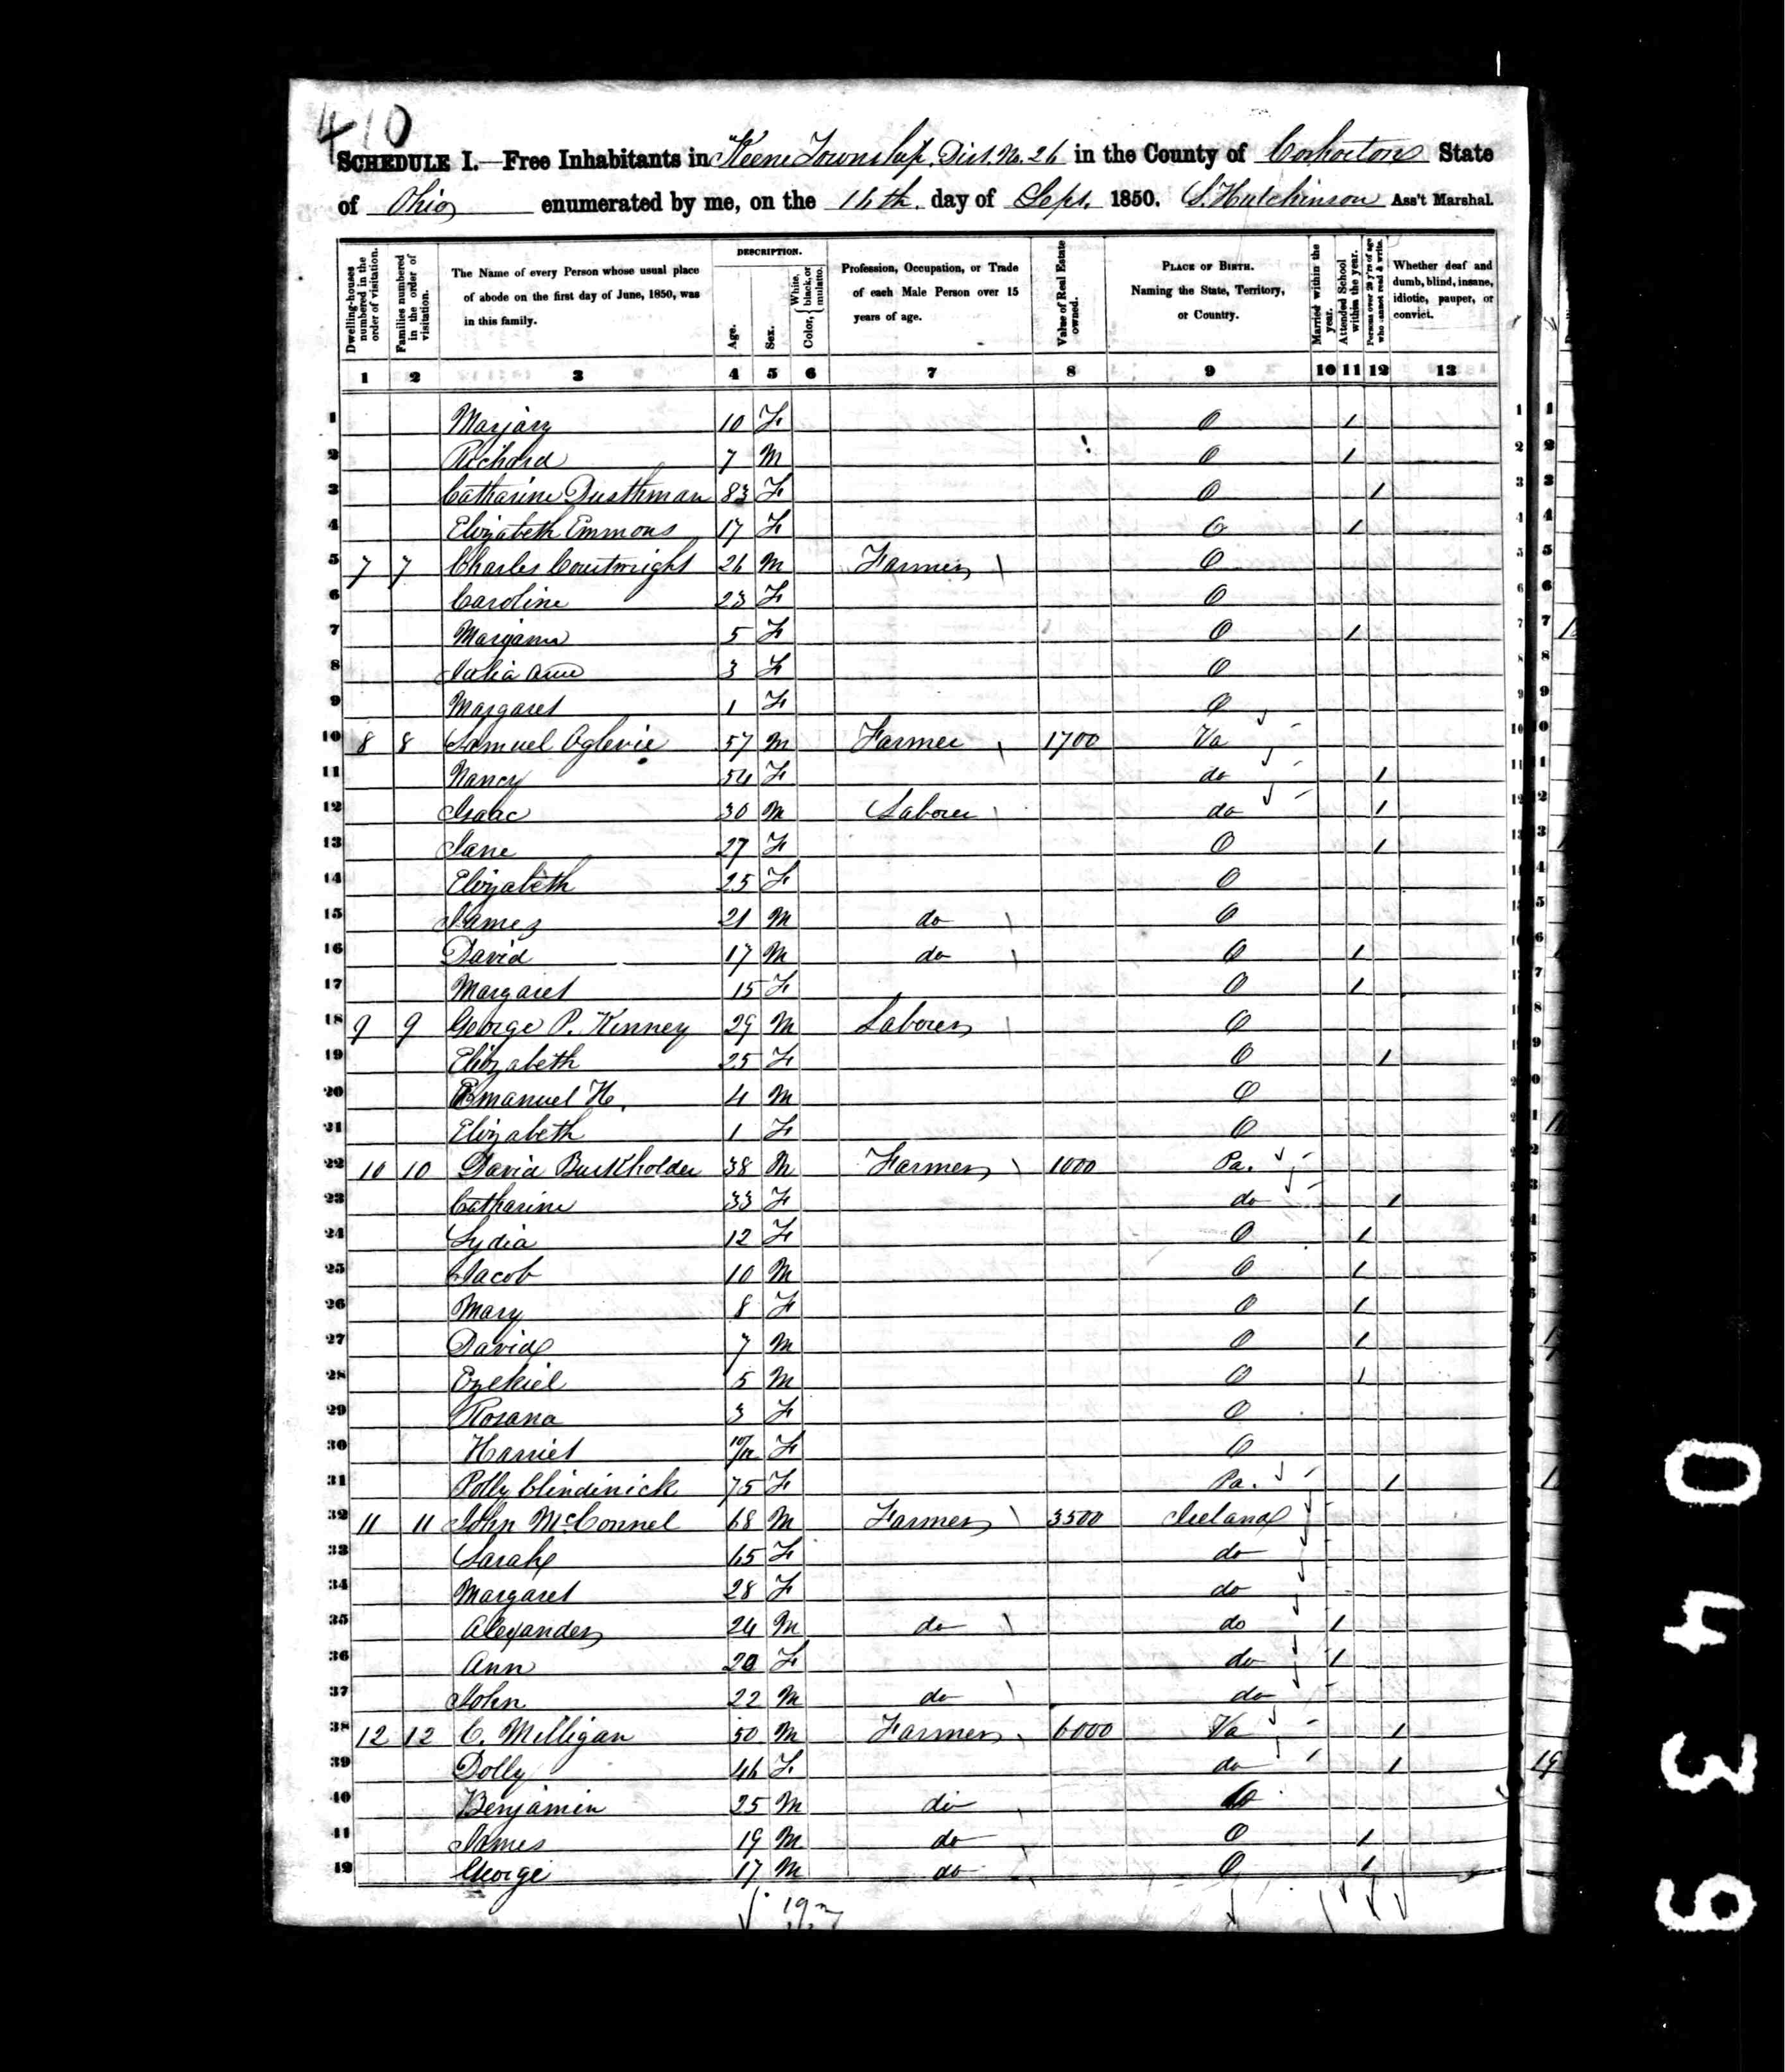 410
SCHEDULE I.—Free Inhabitants in Keene Township, Dist. No. 26 in the County of Coshocton State
of Ohio enumerated by me, on the 16th. day of Sept. 1850. S. Hutchinson Ass't Marshal.
Dwelling-houses numbered in the order of visitation.
Families numbered in the order of visitation.
The Name of every Person whose usual place of abode on the first day of June, 1850, was in this family.
DESCRIPTION.
Age.
Sex.
Color, { White, black, or mulatto.
Profession, Occupation, or Trade of each Male Person over 15 years of age.
Value of Real Estate owned.
PLACE OF BIRTH. Naming the State, Territory, or Country.
Married within the year.
Attended School within the year.
Persons over 20 y'rs of age who cannot read & write.
Whether deaf and dumb, blind, insane, idiotic, pauper, or convict.
1 2 3 4 5 6 7 8 9 10 11 12 13
1 10 F O 1 1
2 Richard 7 M O 1 2
3 Catharine 83 F O 1 3
4 Elizabeth Emmons 17 F O 1 4
5 7 7 Charles Courtwright 26 M Farmer O 5
6 Caroline 23 F O 6
7 5 F O 1 7
8 Julia Ann 3 F O 8
9 Margaret 1 F O 9
10 8 8 Samuel Oglevie 57 M Farmer 1700 Va 10
11 Nancy 54 F do 1 11
12 Isaac 30 M Laborer do 1 12
13 Jane 27 F O 1
14 Elizabeth 25 F O
15 James 21 M do O
16 David 17 M do O 1
17 Margaret 15 F O 1
18 9 9 George P. Kenney 29 M Laborer O
19 Elizabeth 25 F O 1
20 Emanuel H. 4 M O
21 Elizabeth 1 F O
22 10 10 David Burkholder 38 M Farmer 1000 Pa.
23 Catharine 33 F do 1
24 Lydia 12 F O 1
25 Jacob 10 M O 1
26 Mary 8 F O 1
27 David 7 M O 1
28 Ezekiel 5 M O 1
29 Rosana 3 F O
30 Harriet 10/12 F O
31 Polly Clindinick 75 F Pa. 1
32 11 11 John McConnel 68 M Farmer 3500 Ireland
33 Sarah 65 F do
34 Margaret 28 F do
35 Alexander 24 M do do 1
36 Ann 20 F do 1
37 John 22 M do do
38 12 12 C. Milligan 50 M Farmer 6000 Va 1
39 Dolly 46 F do 1
40 Benjamin 25 M do
41 James 19 M do O 1
42 George 17 M do O 1
6340